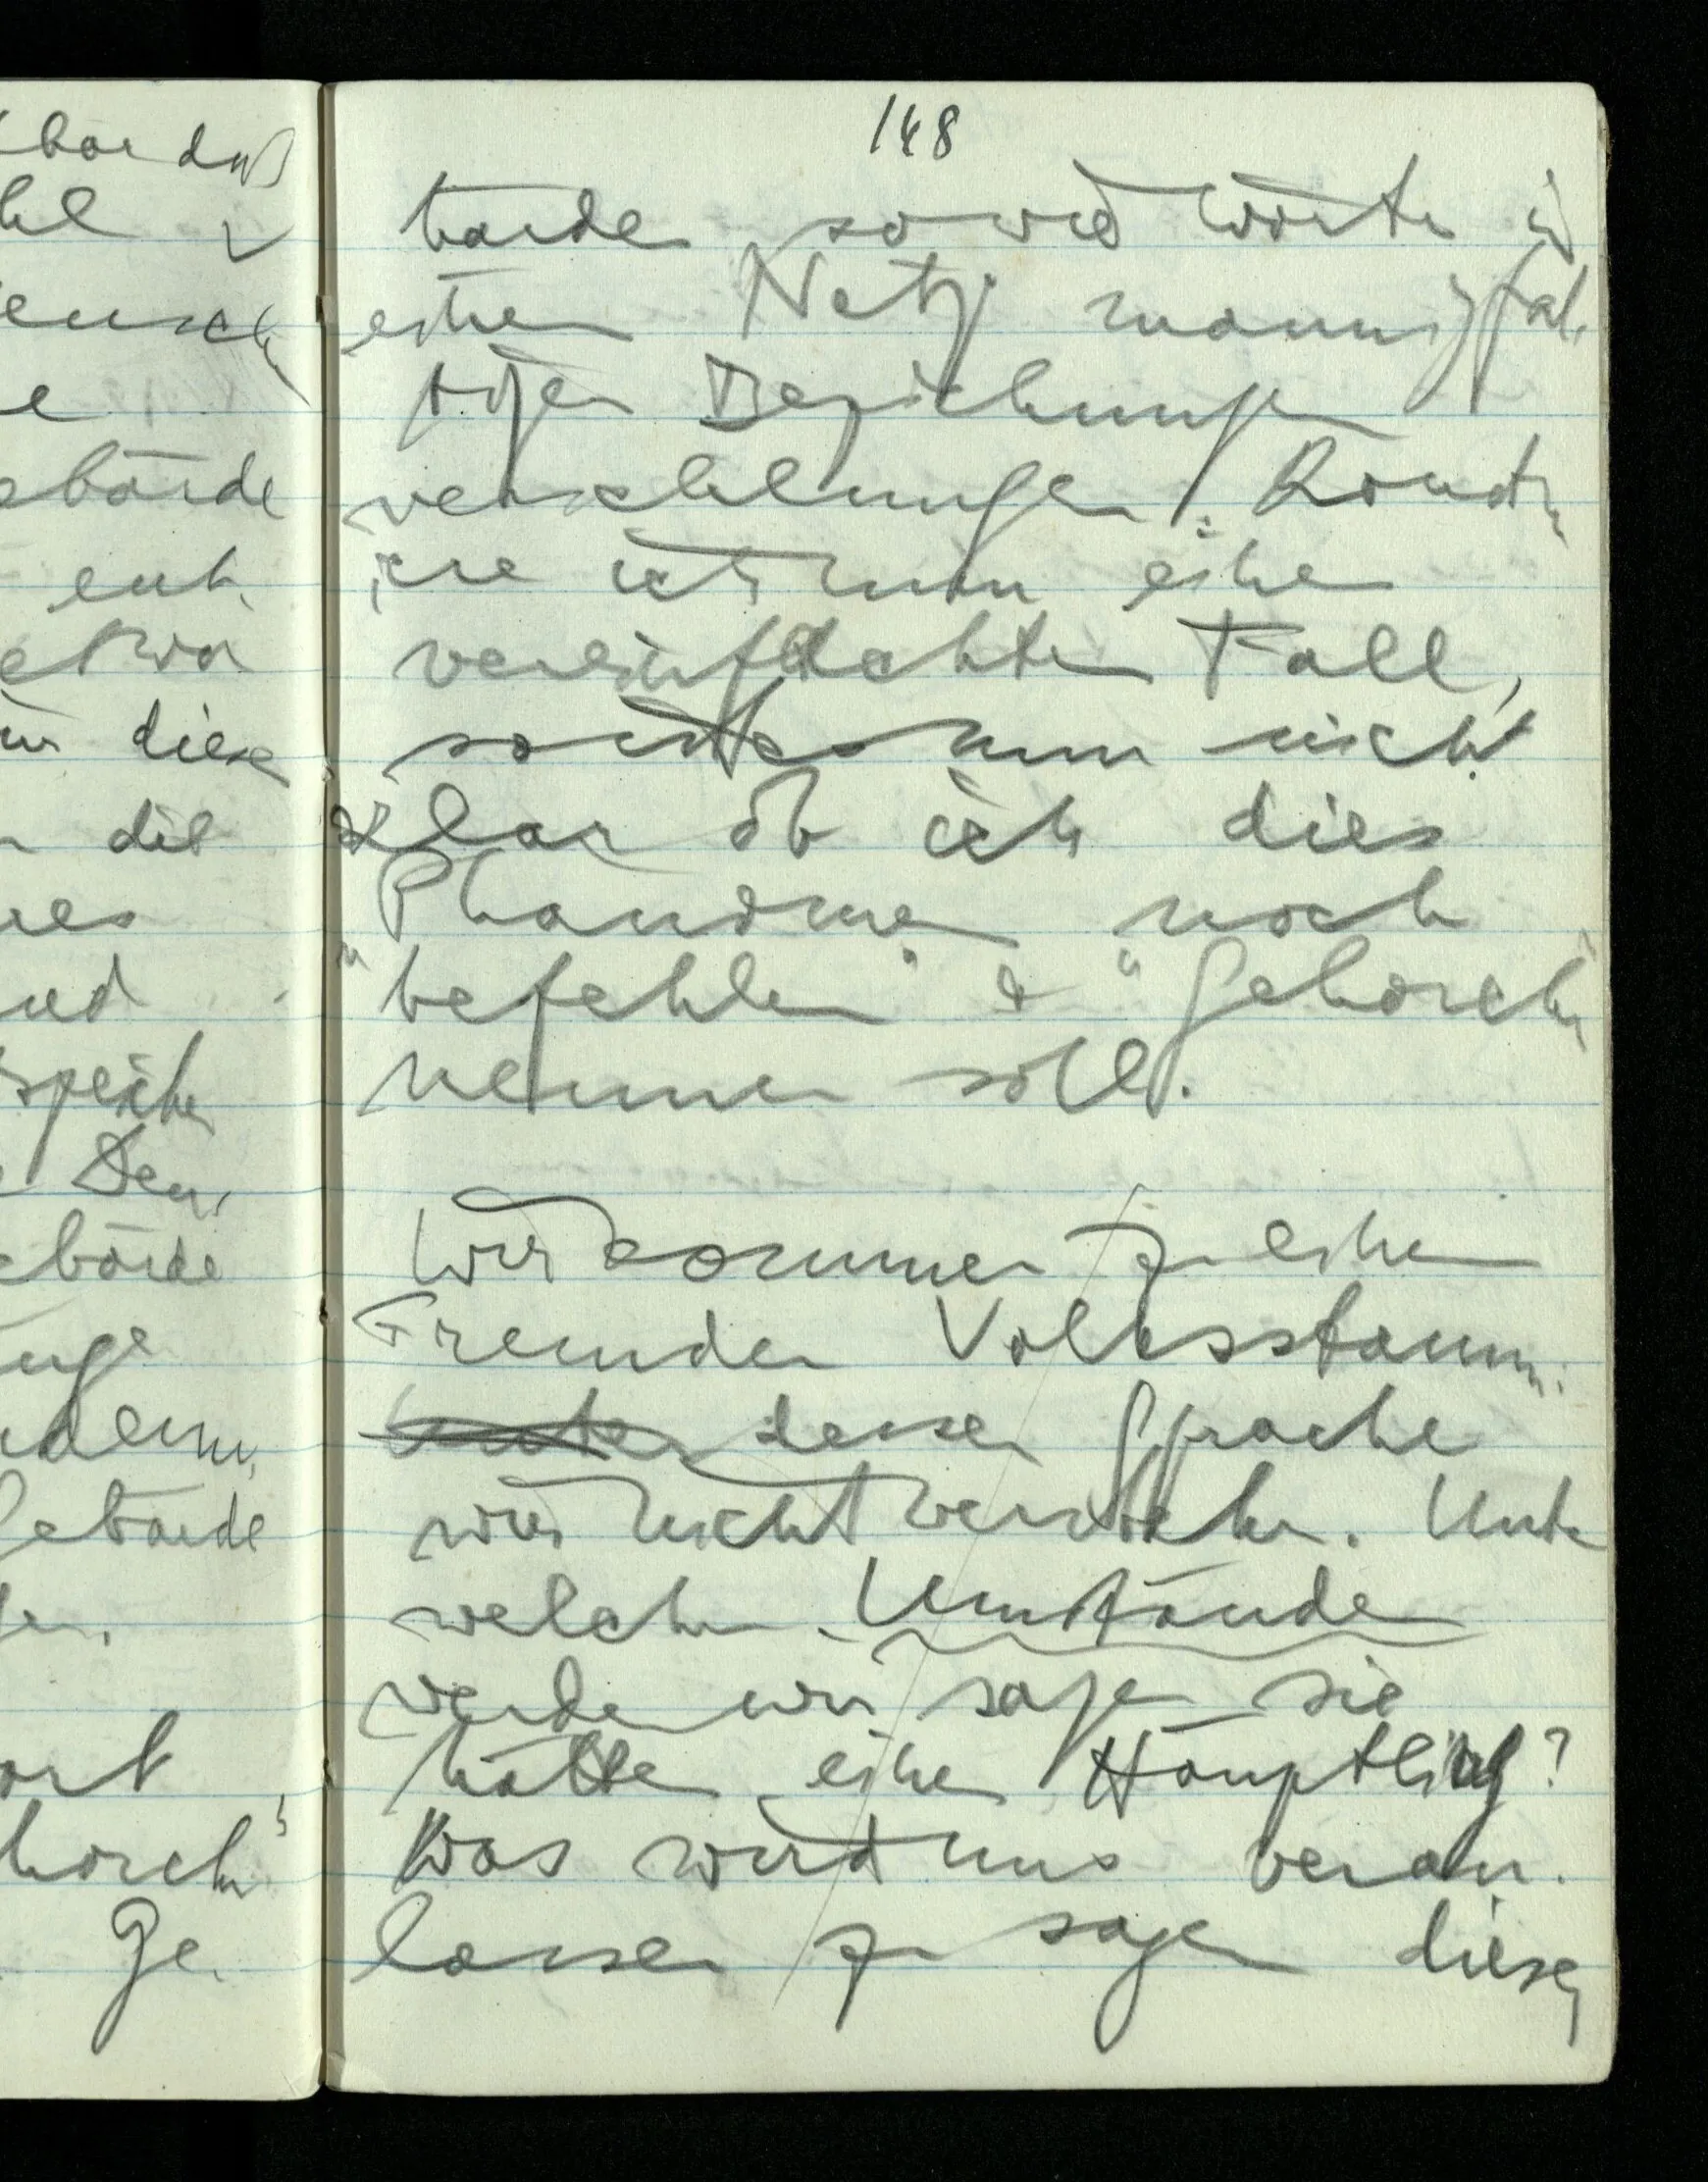 bor daß
hl
ensch
e
ebärde
ent-
etwa
diese
die
res
nd
spiche
Den-
ebärde
uge
ndern,
Gebärde
en.
ort
horch"
Ge-
148
bärden so wie Worte in
einem Netz mannigfal-
tiger Beziehungen
verschlungen.
ich nun einen
vereinfachten Fall,
so ist es nun nicht
klar ob ich dies
Phänomen noch
"befehlen" & "gehorchen"
nennen soll.
Wir kommen zu einem
Fremden Volksstamm
dessen Sprache
wir nicht verstehen. Unter
welchen Umständen
werden wir sagen sie
hätten einen Häuptling?
Was wird uns veran-
lassen zu sagen dieser